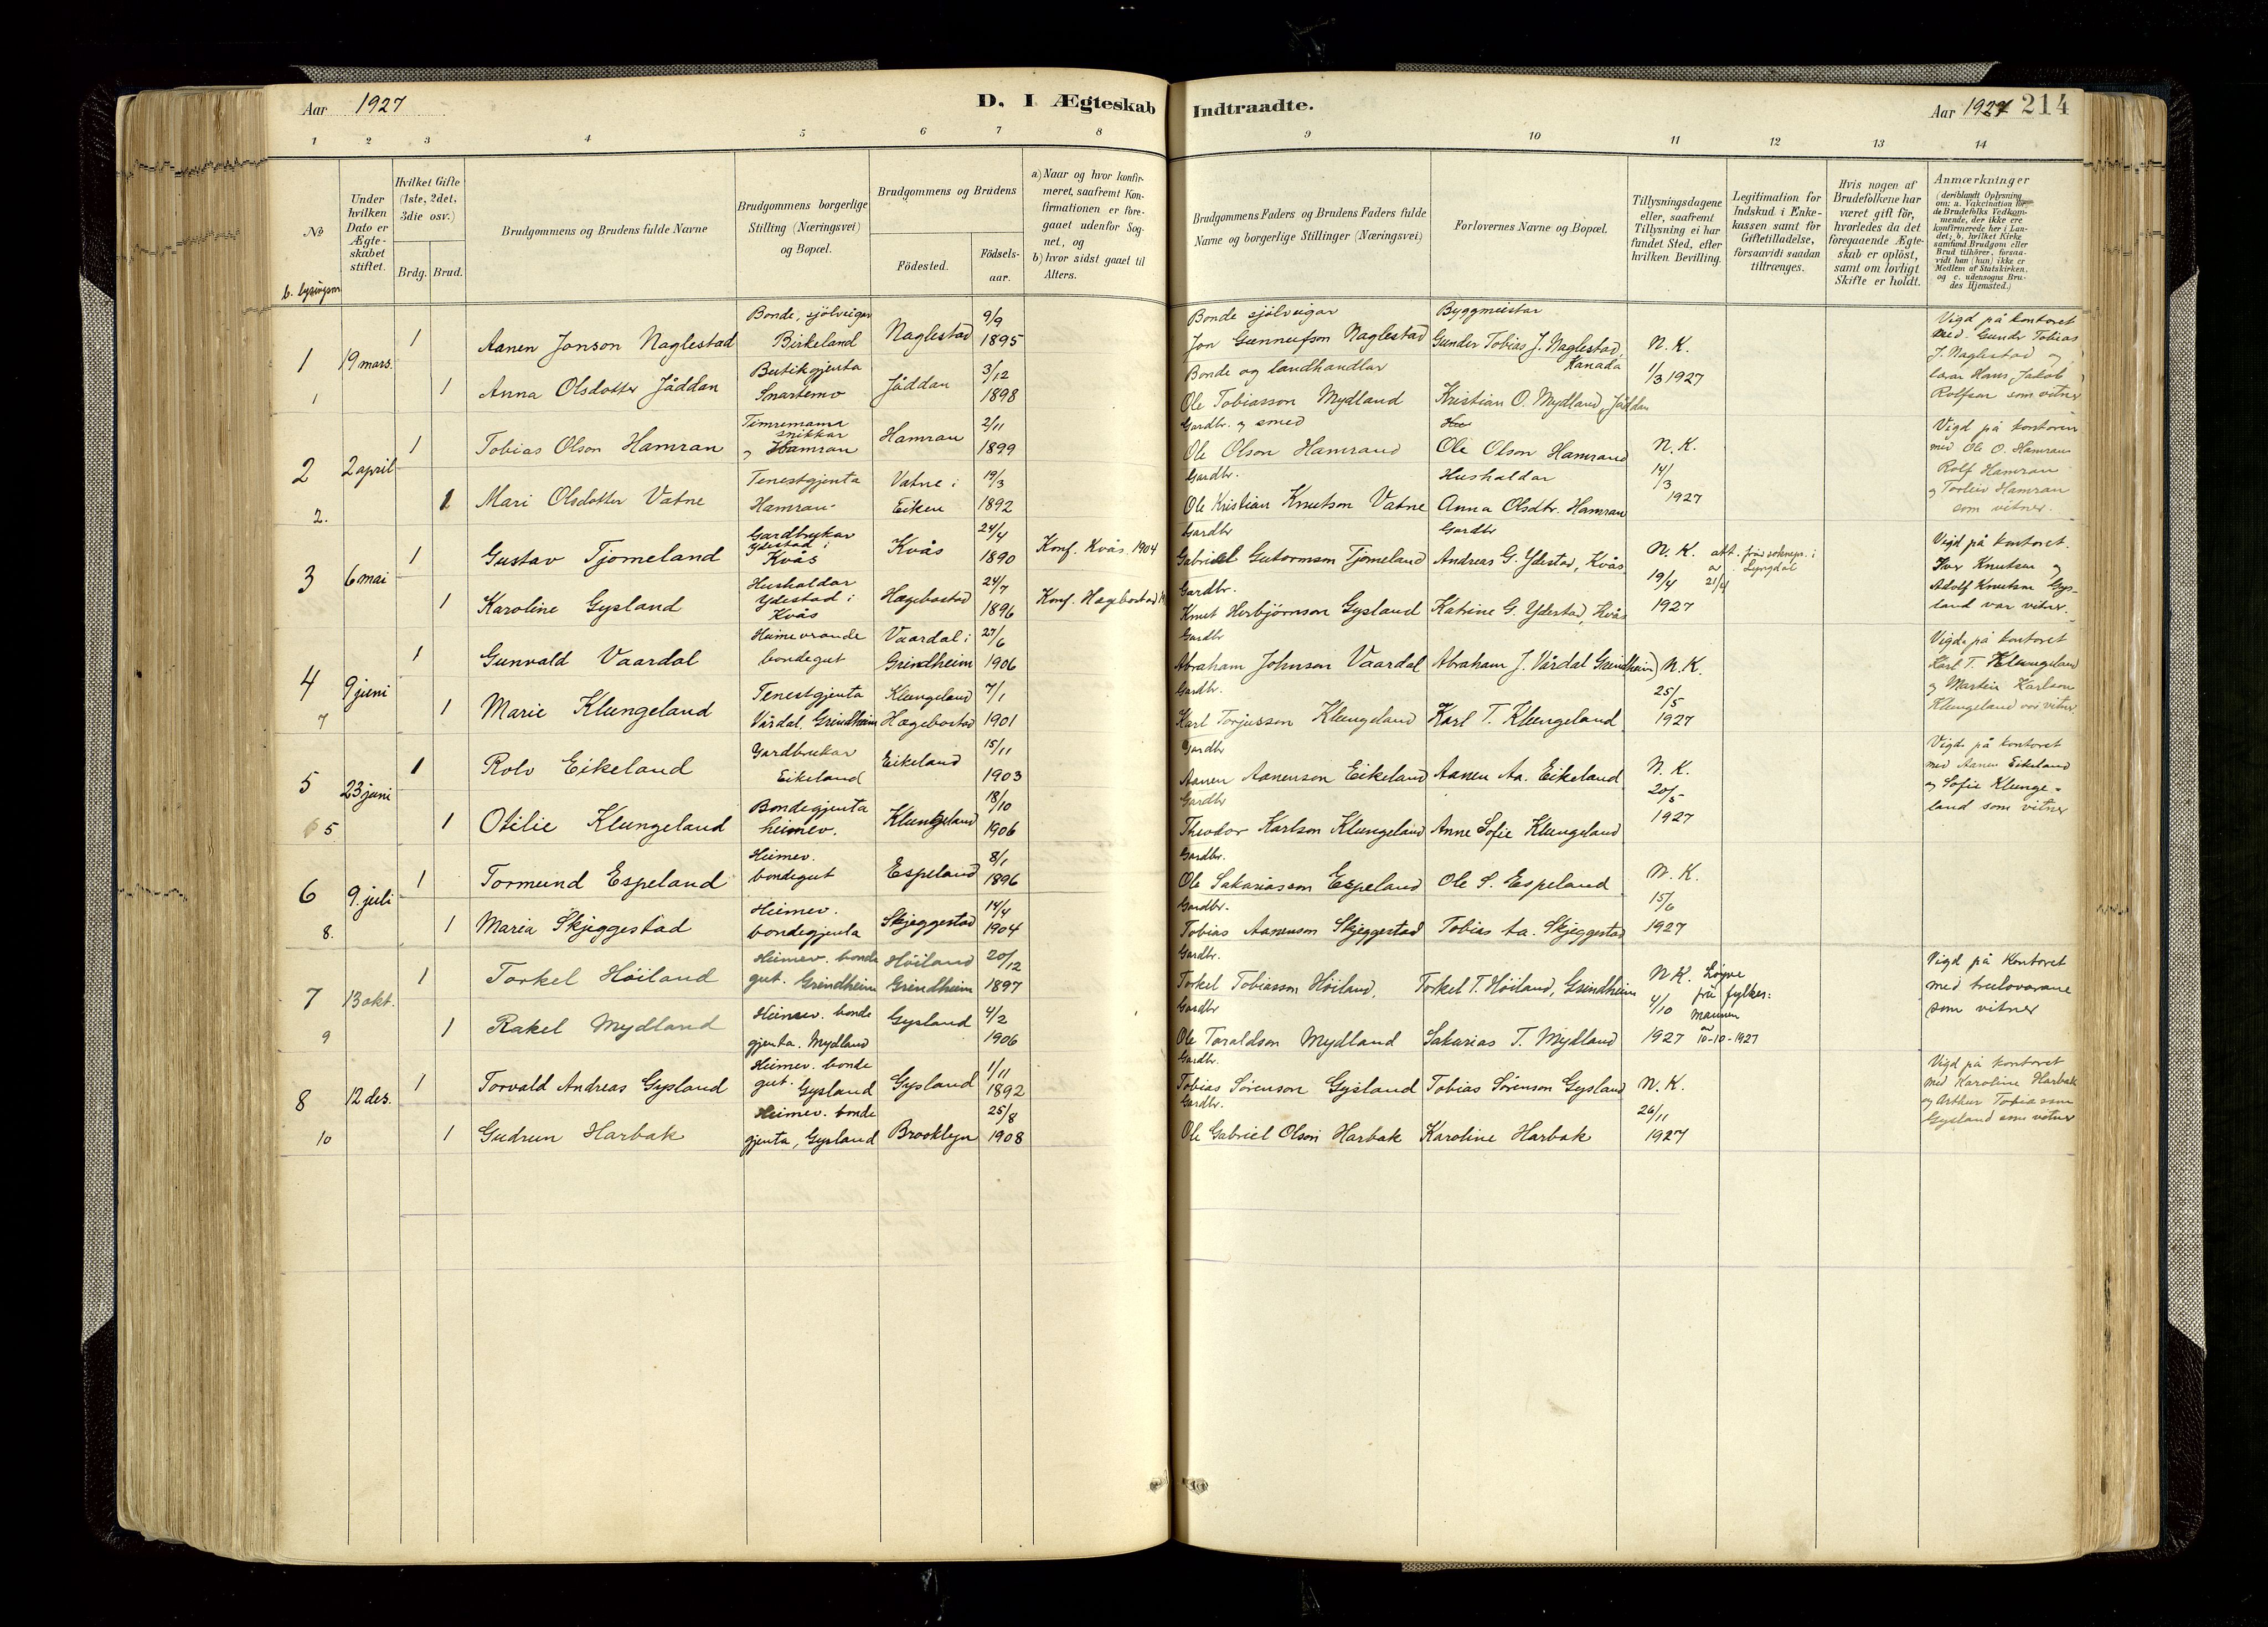 Aar 1927
D. I Ægteskab Indtraadte.
Aar 1927 214
1 2 3 4 5 6 7 8 9 10 11 12 13 14
No
b. lysingsnr
Under hvilken Dato er Ægte-skabet stiftet.
Hvilket Gifte (1ste, 2det, 3die osv.)
Brdg. Brud.
Brudgommens og Brudens fulde Navne
Brudgommens borgerlige Stilling (Næringsvei) og Bopæl.
Brudgommens og Brudens
Födested. Födsels-aar.
a) Naar og hvor konfir-meret, saafremt Kon-firmationen er fore-gaaet udenfor Sog-net, og
b) hvor sidst gaaet til Alters.
Brudgommens Faders og Brudens Faders fulde Navne og borgerlige Stillinger (Næringsvei)
Forlovernes Navne og Bopæl.
Tillysningsdagene eller, saafremt Tillysning ei har fundet Sted, efter hvilken Bevilling.
Legitimation for Indskud i Enke-kassen samt for Giftetilladelse, forsaavidt saadan tiltrænges.
Hvis nogen af Brudefolkene har været gift för, hvorledes da det foregaaende Ægte-skab er oplöst, samt om lovligt Skifte er holdt.
Anmærkninger (deriblandt Oplysning om: a. Vakcination for de Brudefolks Vedkom-mende, der ikke ere konfirmerede her i Lan-det; b. hvilket Kirke samfund Brudgom eller Brud tilhörer, forsaa-vidt han (hun) ikke er Medlem af Statskirken, og c. udensogns Bru-des Hjemsted.)
1 19 mars. 1 Aanen Jonson Naglestad Bonde, sjölveigar Birkeland Naglestad 9/9 1895 Bonde sjölveigar Jon Gunnufson Naglestad Byggmeistar Gunder Tobias J. Naglestad, Kanada N. K. 1/3 1927
1 1 Anna Olsdotter Jåddan Butikgjenta Snartemo Jåddan 3/12 1898 Bonde og landhandlar Ole Tobiasson Mydland Kristian O. Mydland, Jåddan
Vigd på kontoret med Gunder Tobias J. Naglestad og Hans Jakob Rolfsen som vitner
2 2 april 1 Tobias Olson Hamran Timremann snikkar Hamran Hamran 2/11 1899 Gardbr. og smed Ole Olson Hamrand Ole Olson Hamrand N. K. 14/3 1927
2. 1 Mari Olsdotter Vatne Tenestgjenta Hamran Vatne i Eiken 19/3 1892 Gardbr. Ole Kristian Knutson Vatne Hushaldar Anna Olsdtr. Hamran
Vigd på kontoren med Ole O. Hamran Rolf Hamran og Torleiv Hamran som vitner.
3 6 mai 1 Gustav Tjomeland Gardbrukar Ydestad i Kvås Kvås 24/4 1890 Konf. Kvås. 1904 Gardbr Gabriel Gutormson Tjomeland Gardbr Andreas G. Ydestad, Kvås N. K. 19/4 1927 att. frå soknepr. i Lyngdal av 21/4
1 Karoline Gysland Hushaldar Ydestad i Kvås Hægebostad 24/7 1896 Konf. Hægebostad Gardbr. Knut Herbjörnson Gysland Katrine G. Ydestad, Kvås
Vigd på kontoret. Iver Knutsen og Adolf Knutsen Gys-land var vitner.
4 9 juni 1 Gunvald Vaardal Heimeverande bondegut Vaardal i Grindheim 27/6 1906 Gardbr Abraham Johnson Vaardal Abraham J. Vårdal Grindheim) N. K. 25/5 1927
7 1 Marie Klungeland Tenestgjenta Vårdal, Grindheim Klungeland Hægebostad 7/1 1901 Gardbr. Karl Torjusson Klungeland Karl T. Klungeland
Vigde på kontoret Karl T. Klungeland og Martin Karlson Klungeland vitner
5 23 juni 1 Rolv Eikeland Gardbrukar Eikeland Eikeland 15/11 1903 Gardbr Aanen Aanenson Eikeland Aanen Aa. Eikeland N. K. 20/5 1927
5 1 Otilie Klungeland Bondegjenta heimev. Klungeland 18/10 1906 Gardbr Theodor Karlson Klungeland Anne Sofie Klungeland
Vigde på kontoret med Aanen Eikeland og Sofie Klunge-land som vitner
6 9. juli 1 Tormund Espeland Heimev. bondegut Espeland 8/1 1896 Gardbr. Ole Sakariasson Espeland Ole S. Espeland N. K. 15/6 1927
8. 1 Maria Skjeggestad Heimev. bondegjenta Skjeggestad 14/4 1904 Gardbr. Tobias Aanenson Skjeggestad Tobias Aa. Skjeggestad
7 13 okt. 1 Torkel Höiland Heimev. bonde gut. Grindheim Höiland Grindheim 20/12 1897 Gardbr. Torkel Tobiasson Höiland, Torkel T. Höiland, Grindheim N. K. 4/10 1927 Löyve frå fylkes: mannen av 10-10-1927
9 1 Rakel Mydland Heimev. bonde gjenta. Mydland Gysland 4/2 1906 Gardbr Ole Taraldson Mydland Sakarias T. Mydland
Vigd på kontoret med truelovarane som vitner
8 12 des. 1 Torvald Andreas Gysland Heimev. bonde gut. Gysland Gysland 1/11 1892 Gardbr. Tobias Sörenson Gysland Tobias Sörenson Gysland N. K. 26/11 1927
10 1 Gudrun Harbak Heimev. bonde gjenta, Gysland Brooklyn 25/8 1908 Gardbr. Ole Gabriel Olson Harbak Karoline Harbak
Vigd på kontoret med Karoline Harbak og Arthur Tobiassen Gysland som vitner